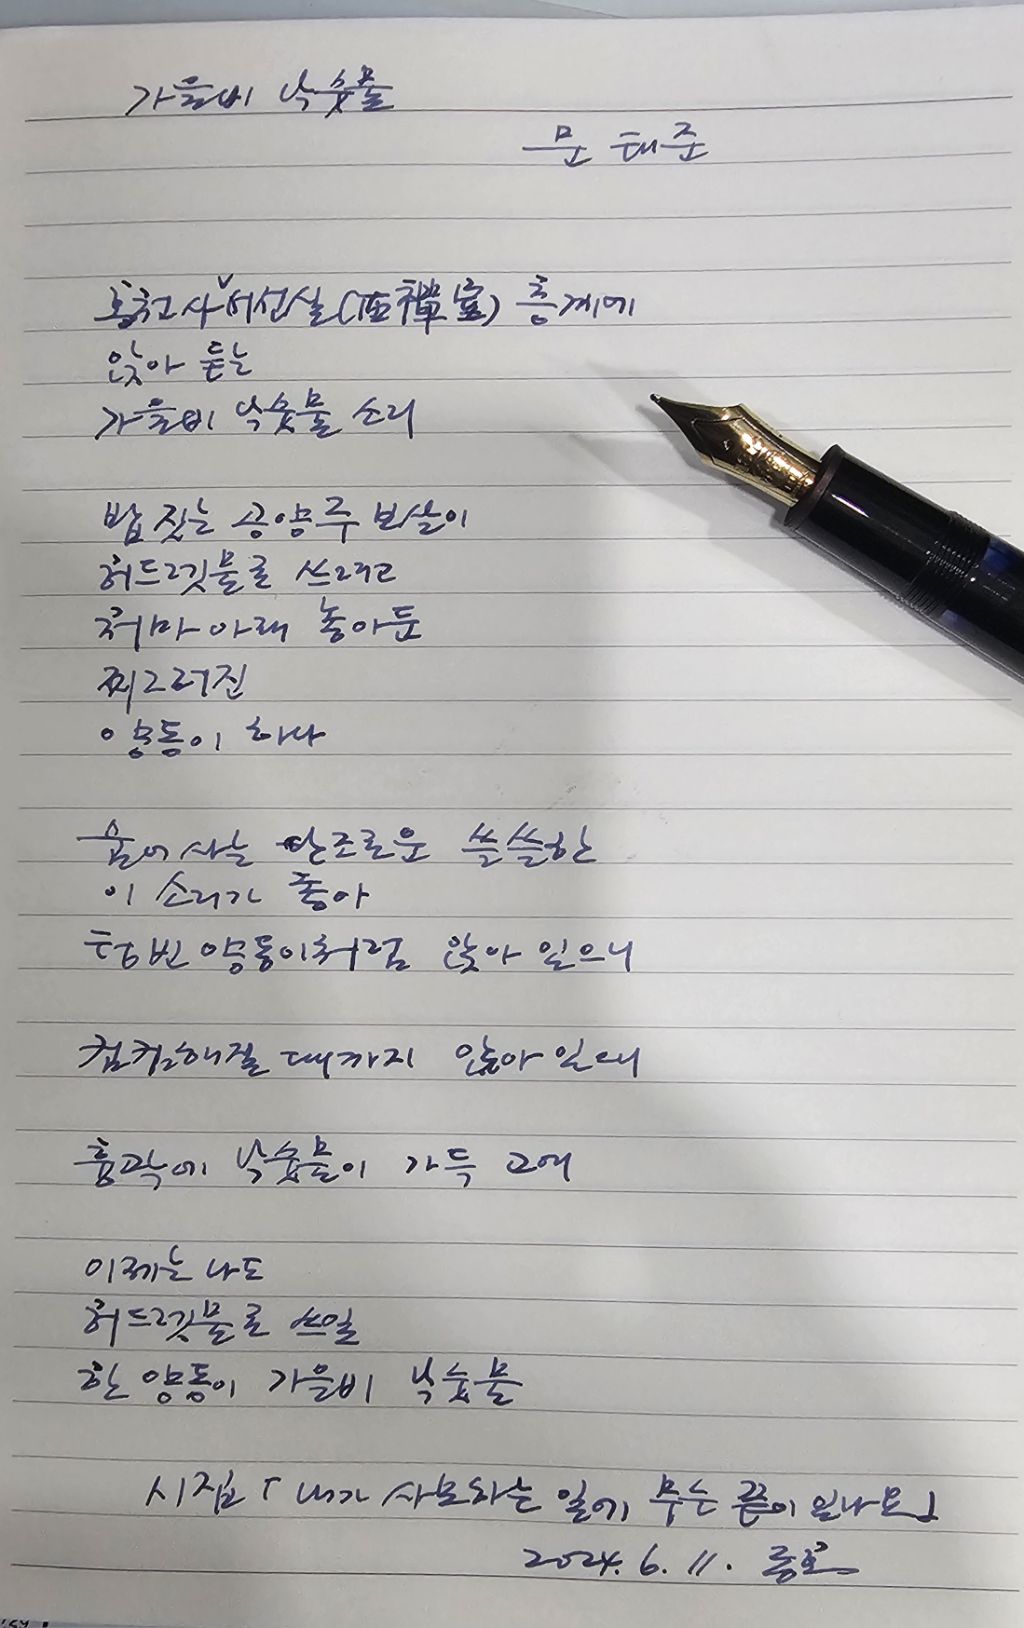 가을비 낙숫물
문 태준
흥천사 서선실(西禪室) 층계에
앉아 듣는
가을비 낙숫물 소리
밥 짓는 공양주 보살이
허드렛물로 쓰려고
처마 아래 놓아둔
찌그러진
양동이 하나
숨어 사는 단조로운 쓸쓸한
이 소리가 좋아
텅 빈 양동이처럼 앉아 있으니
컴컴해질 때까지 앉아 있으니
흉곽에 낙숫물이 가득 고여
이제는 나도
허드렛물로 쓰일
한 양동이 가을비 낙숫물
시집 「내가 사모하는 일에 무슨 끝이 있나요」
2024. 6. 11.